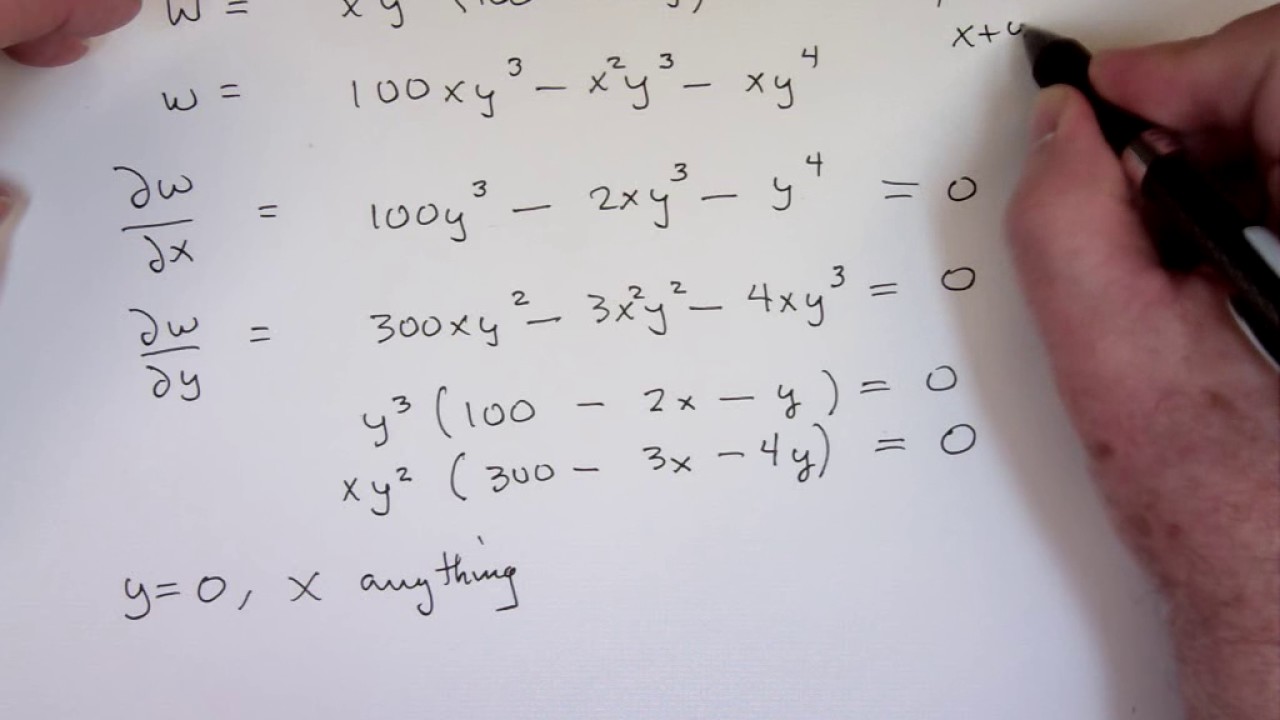 x+y
w = 100xy³ – x²y³ – xy⁴
∂w/∂x = 100y³ – 2xy³ – y⁴ = 0
∂w/∂y = 300xy² – 3x²y² – 4xy³ = 0
y³ (100 – 2x – y) = 0
xy² (300 – 3x – 4y) = 0
y=0, x anything